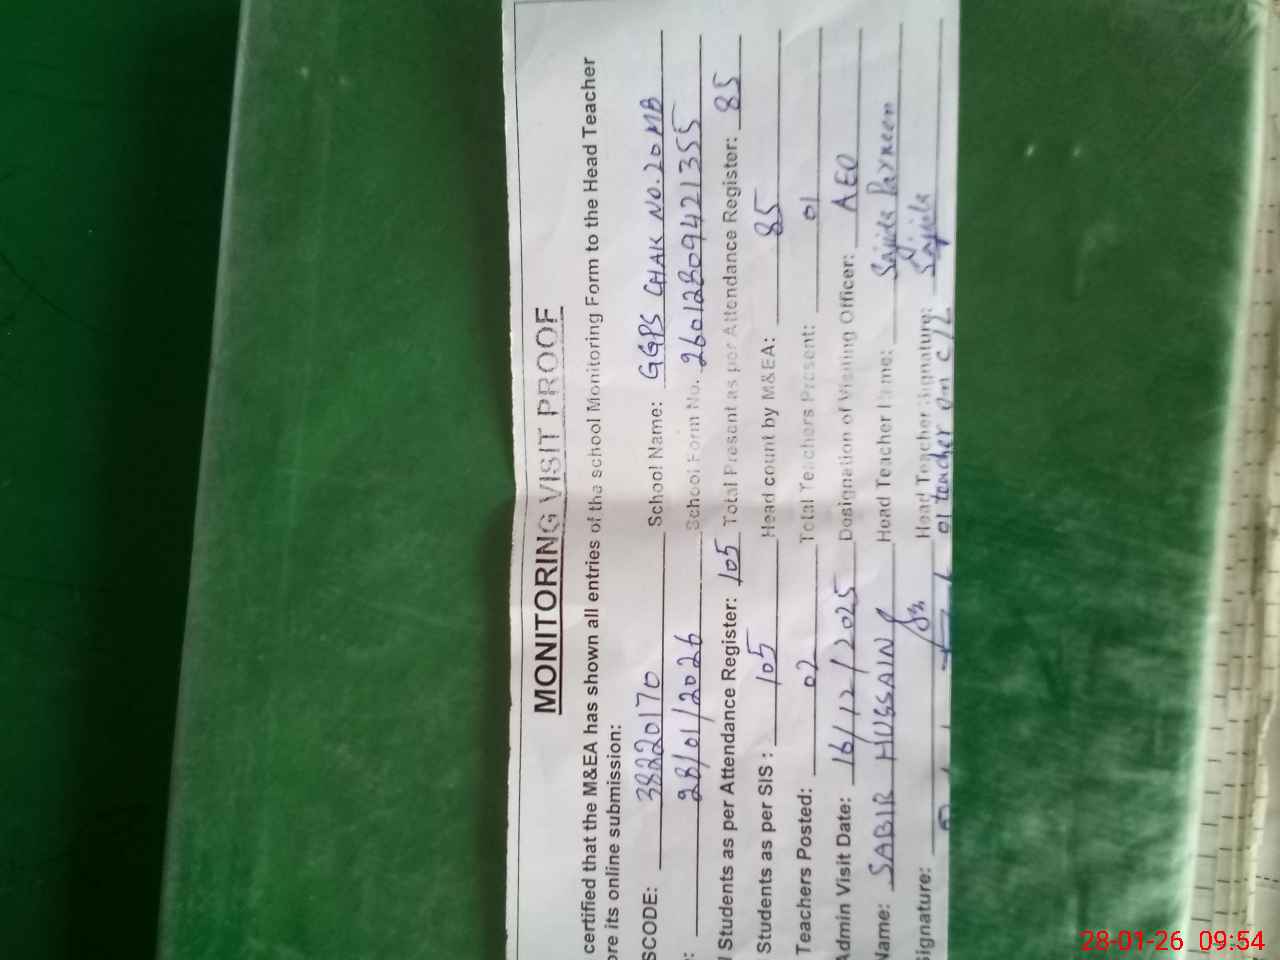 MONITORING VISIT PROOF
certified that the M&EA has shown all entries of the school Monitoring Form to the Head Teacher
ore its online submission:
SCODE: 38220170 School Name: GGPS CHAK NO.20 MB
: 28/01/2026 School Form No. 26012809421355
l Students as per Attendance Register: 105 Total Present as per Attendance Register: 85
Students as per SIS : 105 Head count by M&EA: 85
Teachers Posted: 02 Total Teachers Present: 01
Admin Visit Date: 16/12/2025 Designation of Visiting Officer: AEO
Name: SABIR HUSSAIN Head Teacher Name: Sajida Parveen
Signature: Head Teacher Signature: Sajida
01 teacher on c/L
28-01-26 09:54